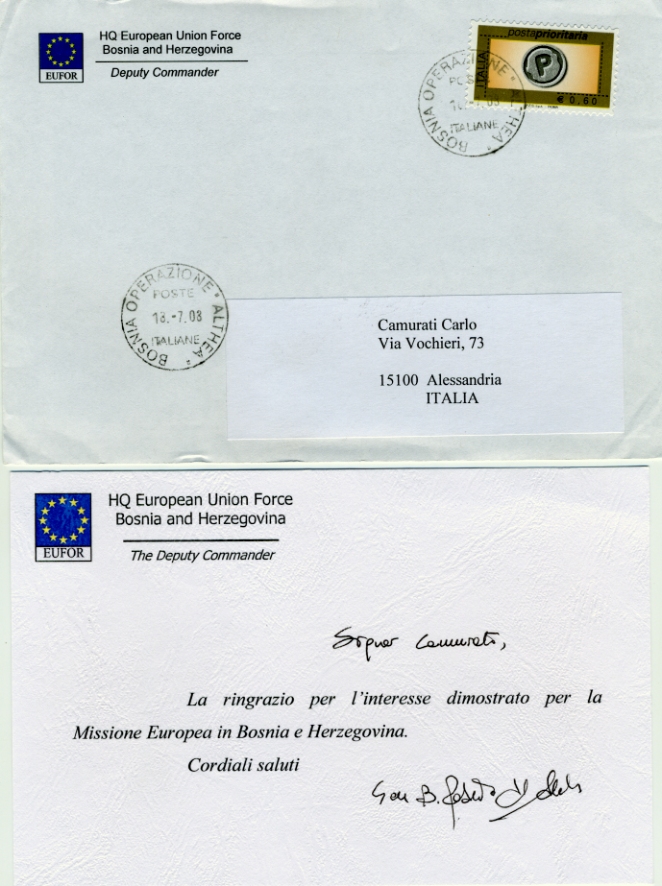 HQ European Union Force
Bosnia and Herzegovina
EUFOR
Deputy Commander
postaprioritaria
ITALIA
P
€ 0,60
BOSNIA OPERAZIONE * ALTHEA *
ITALIANE
BOSNIA OPERAZIONE * ALTHEA *
POSTE
18.-7.08
ITALIANE
Camurati Carlo
Via Vochieri, 73
15100 Alessandria
ITALIA
HQ European Union Force
Bosnia and Herzegovina
EUFOR
The Deputy Commander
Signor Camurati,
La ringrazio per l'interesse dimostrato per la
Missione Europea in Bosnia e Herzegovina.
Cordiali saluti
Gen. B.